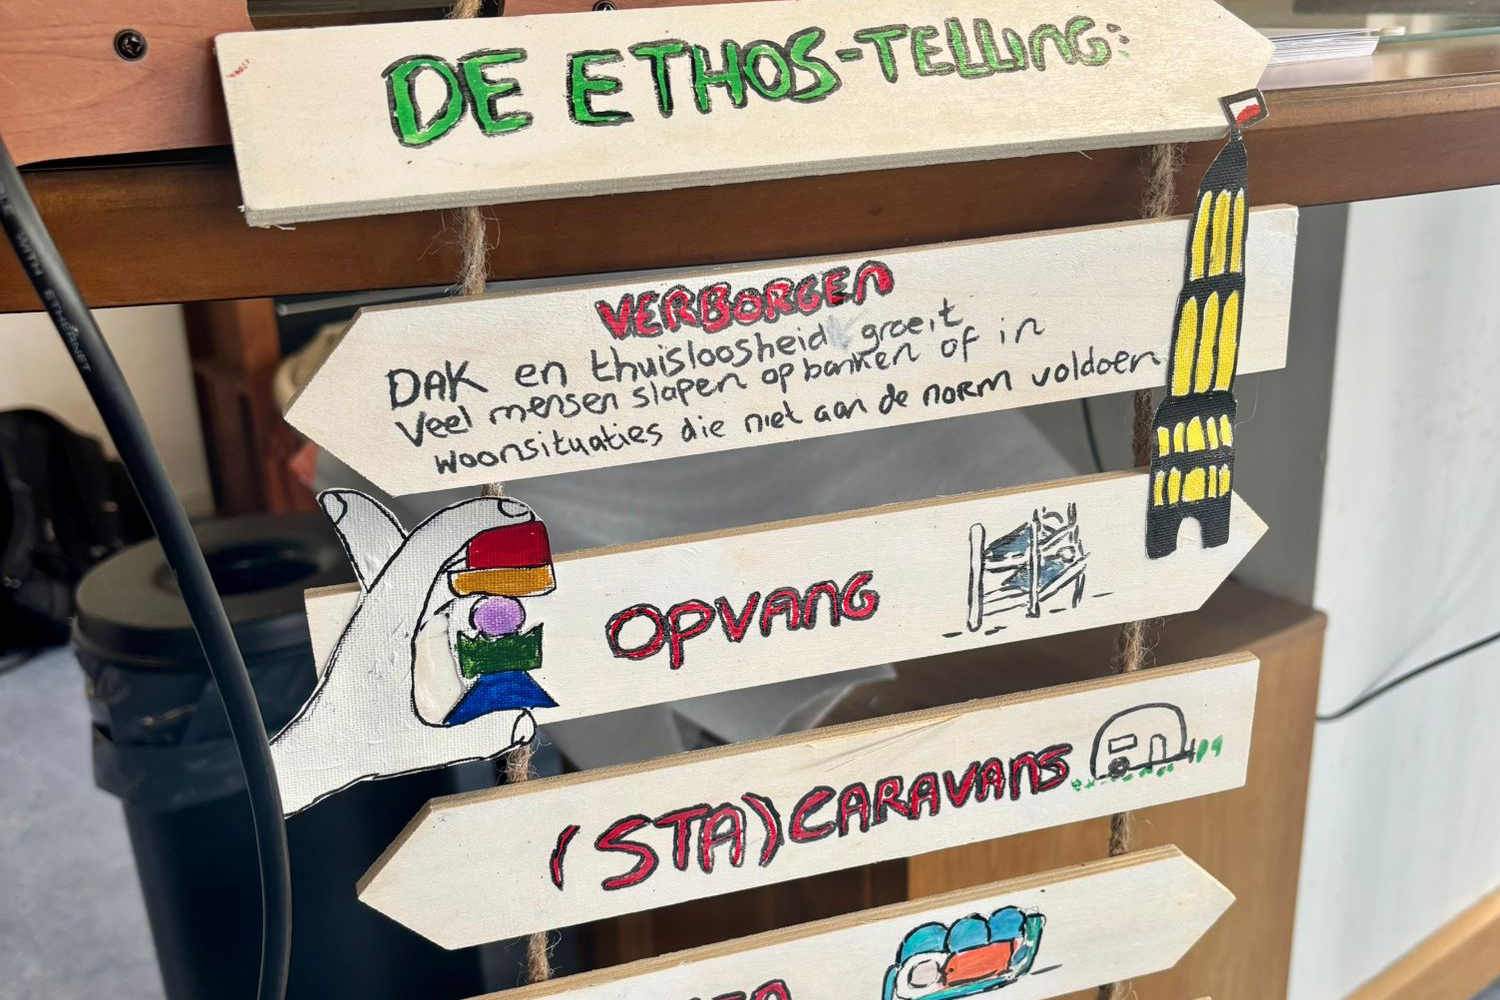 DE ETHOS-TELLING:
VERBORGEN
DAK en thuisloosheid groeit
Veel mensen slapen op banken of in
woonsituaties die niet aan de norm voldoen
OPVANG
(STA)CARAVANS
WITH ETHERNET